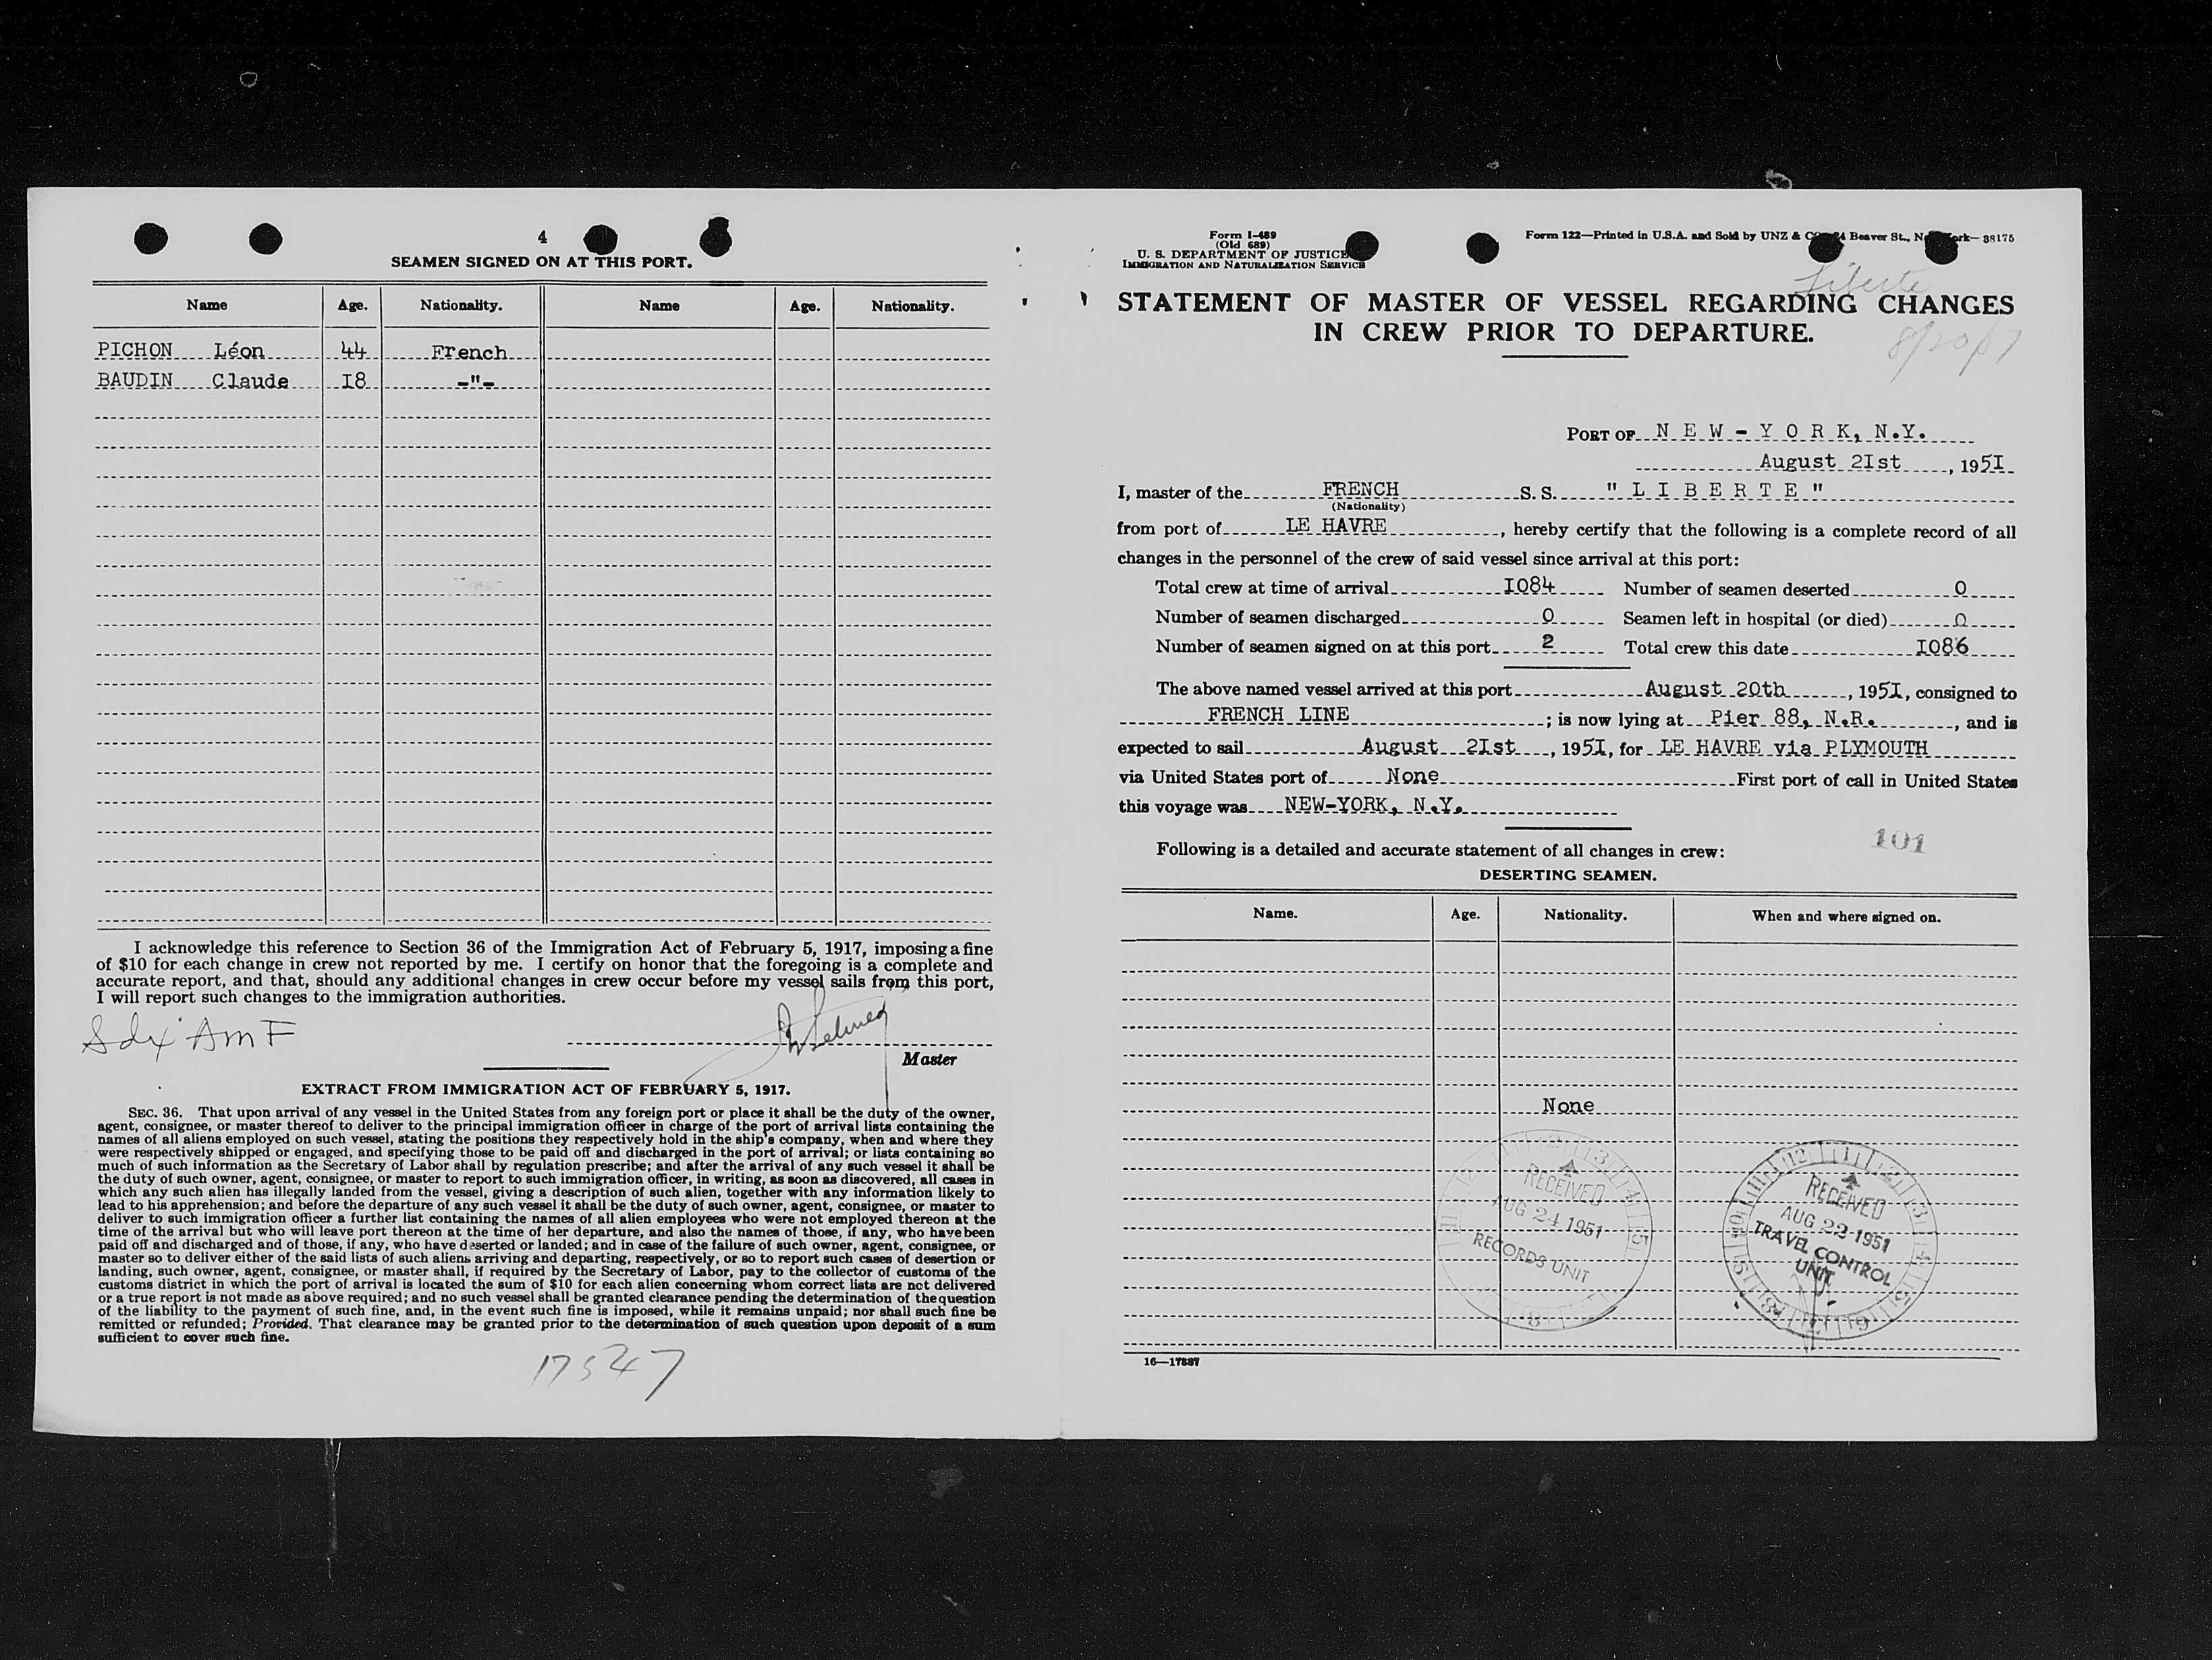 4
SEAMEN SIGNED ON AT THIS PORT.
Name Age. Nationality. Name Age. Nationality.
PICHON Léon 44 French
BAUDIN Claude I8 -"-
I acknowledge this reference to Section 36 of the Immigration Act of February 5, 1917, imposing a fine
of $10 for each change in crew not reported by me. I certify on honor that the foregoing is a complete and
accurate report, and that, should any additional changes in crew occur before my vessel sails from this port,
I will report such changes to the immigration authorities.
Master
EXTRACT FROM IMMIGRATION ACT OF FEBRUARY 5, 1917.
SEC. 36. That upon arrival of any vessel in the United States from any foreign port or place it shall be the duty of the owner,
agent, consignee, or master thereof to deliver to the principal immigration officer in charge of the port of arrival lists containing the
names of all aliens employed on such vessel, stating the positions they respectively hold in the ship's company, when and where they
were respectively shipped or engaged, and specifying those to be paid off and discharged in the port of arrival; or lists containing so
much of such information as the Secretary of Labor shall by regulation prescribe; and after the arrival of any such vessel it shall be
the duty of such owner, agent, consignee, or master to report to such immigration officer, in writing, as soon as discovered, all cases in
which any such alien has illegally landed from the vessel, giving a description of such alien, together with any information likely to
lead to his apprehension; and before the departure of any such vessel it shall be the duty of such owner, agent, consignee, or master to
deliver to such immigration officer a further list containing the names of all alien employees who were not employed thereon at the
time of the arrival but who will leave port thereon at the time of her departure, and also the names of those, if any, who have been
paid off and discharged and of those, if any, who have deserted or landed; and in case of the failure of such owner, agent, consignee, or
master so to deliver either of the said lists of such aliens arriving and departing, respectively, or so to report such cases of desertion or
landing, such owner, agent, consignee, or master shall, if required by the Secretary of Labor, pay to the collector of customs of the
customs district in which the port of arrival is located the sum of $10 for each alien concerning whom correct lists are not delivered
or a true report is not made as above required; and no such vessel shall be granted clearance pending the determination of the question
of the liability to the payment of such fine, and, in the event such fine is imposed, while it remains unpaid; nor shall such fine be
remitted or refunded; Provided, That clearance may be granted prior to the determination of such question upon deposit of a sum
sufficient to cover such fine.
17527
Form I-489
(Old 689)
U. S. DEPARTMENT OF JUSTICE
IMMIGRATION AND NATURALIZATION SERVICE
Form 122—Printed in U.S.A. and Sold by UNZ & Beaver St., 38175
Liberte
STATEMENT OF MASTER OF VESSEL REGARDING CHANGES
IN CREW PRIOR TO DEPARTURE.
PORT OF NEW-YORK, N.Y.
August 2Ist, 195I
I, master of the FRENCH S. S. "LIBERTE"
(Nationality)
from port of LE HAVRE, hereby certify that the following is a complete record of all
changes in the personnel of the crew of said vessel since arrival at this port:
Total crew at time of arrival I084 Number of seamen deserted 0
Number of seamen discharged 0 Seamen left in hospital (or died) 0
Number of seamen signed on at this port 2 Total crew this date I086
The above named vessel arrived at this port August 20th, 195I, consigned to
FRENCH LINE; is now lying at Pier 88, N.R., and is
expected to sail August 2Ist, 195I, for LE HAVRE via PLYMOUTH
via United States port of None First port of call in United States
this voyage was NEW-YORK, N.Y.
101
Following is a detailed and accurate statement of all changes in crew:
DESERTING SEAMEN.
Name. Age. Nationality. When and where signed on.
None
RECEIVED
AUG 24 1951
RECORDS UNIT
RECEIVED
AUG 22 1951
TRAVEL CONTROL
UNIT
16—17887